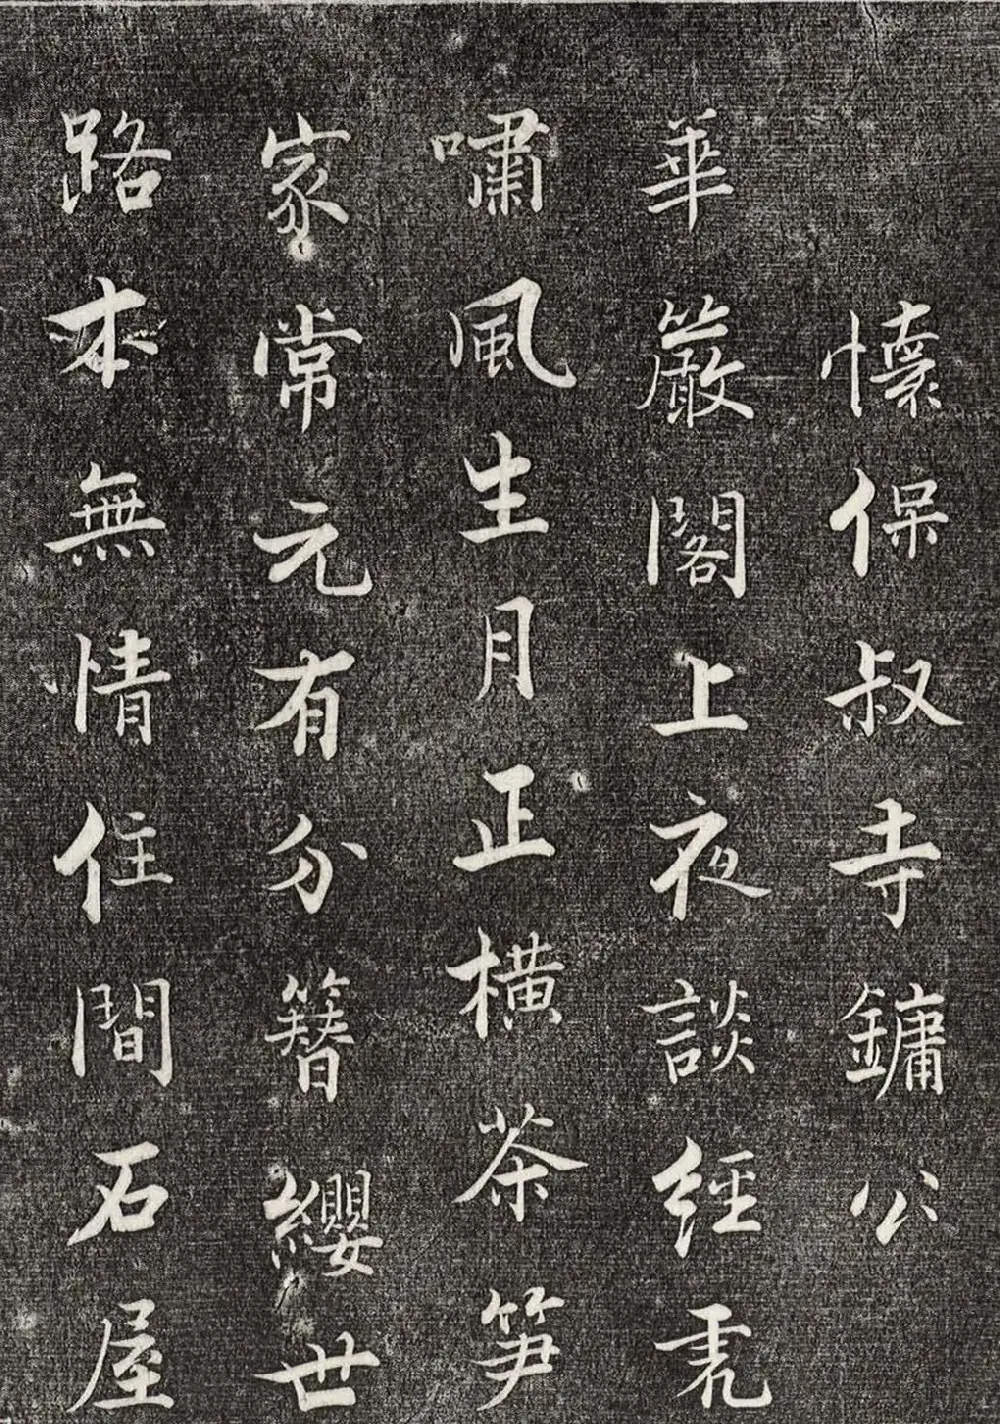 懷保叔寺鏞公
華嚴閣上夜談經虎
嘯風生月正橫茶笋
家常元有分簪纓世
路本無情住間石屋